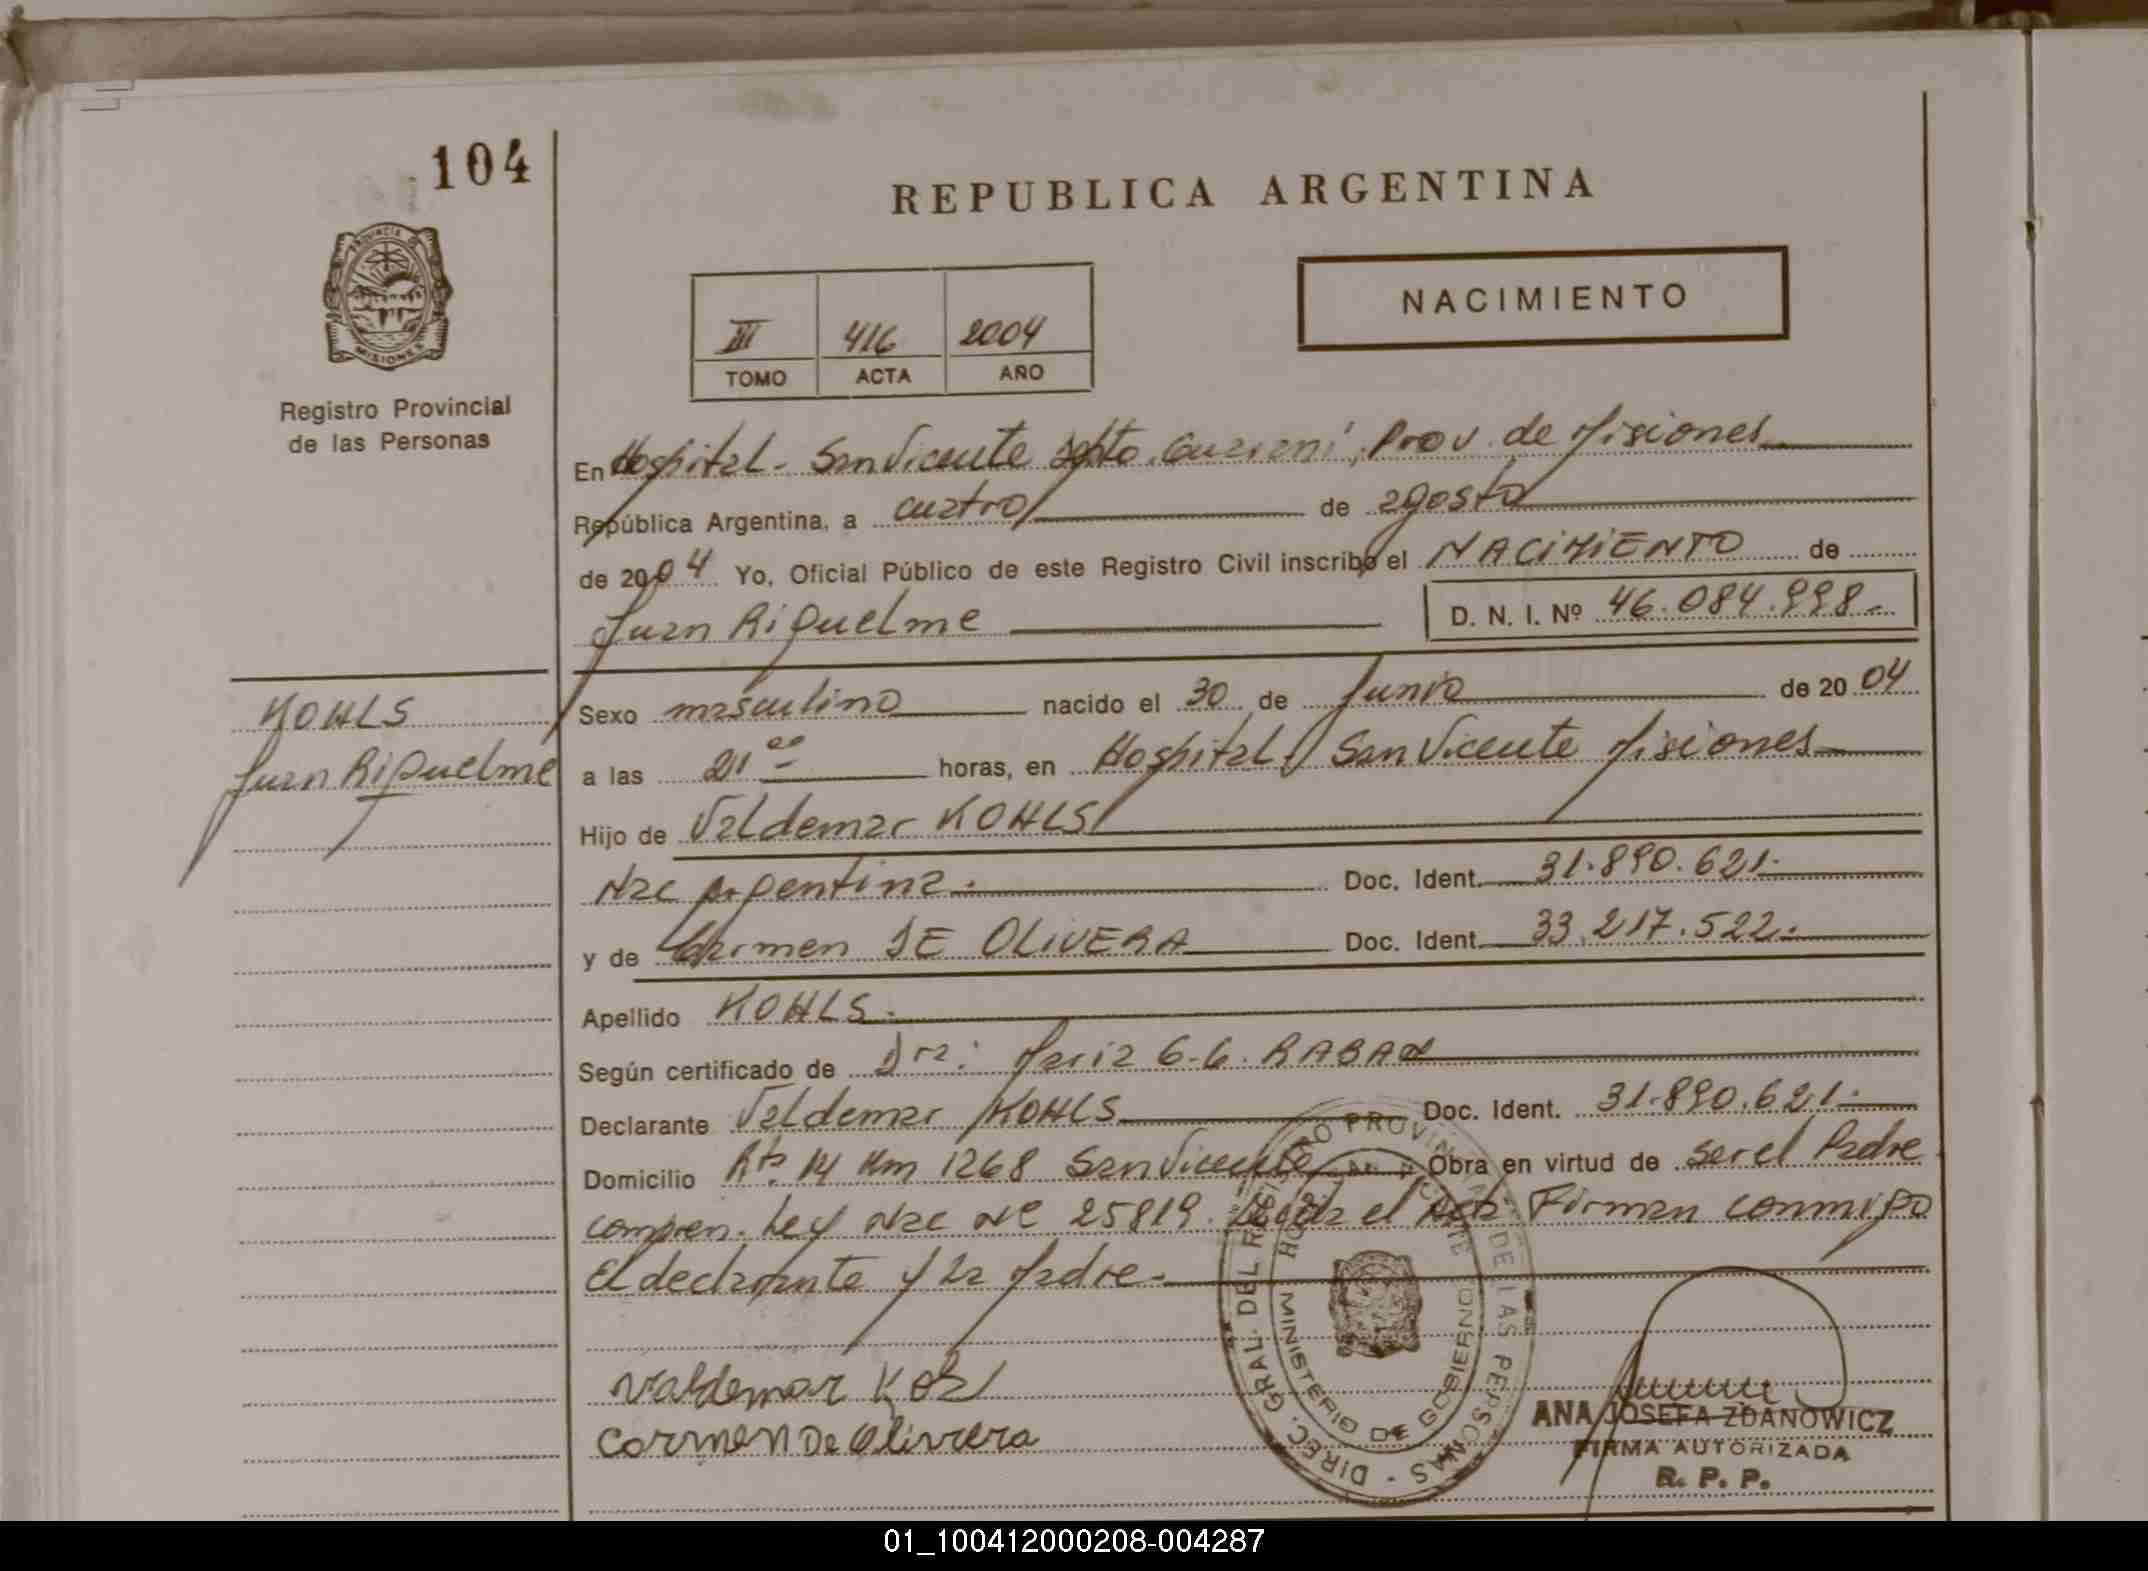 104
PROVINCIA DE
MISIONES
Registro Provincial
de las Personas
REPUBLICA ARGENTINA
III 416 2004
TOMO ACTA AÑO
NACIMIENTO
En Hospital - San Vicente Dpto. Guaraní, Prov. de Misiones
República Argentina, a cuatro de agosto
de 2004 Yo, Oficial Público de este Registro Civil inscribo el NACIMIENTO de
Juan Riquelme D. N. I. Nº 46.084.998.-
KOHLS
Juan Riquelme
Sexo masculino nacido el 30 de Junio de 2004
a las 21 00 horas, en Hospital San Vicente Misiones
Hijo de Valdemar KOHLS
Nac Argentina. Doc. Ident. 31.890.621.
y de Carmen DE OLIVERA Doc. Ident. 33.217.522.
Apellido KOHLS.
Según certificado de Dra: Maria G. G. RABAN
Declarante Valdemar KOHLS Doc. Ident. 31.890.621.
Domicilio Rta. 14 Km 1268 San Vicente Obra en virtud de ser el Padre
compren. Ley Nac Nº 25819. Leída el Acta Firman conmigo
El declarante y la Madre.
Valdemar
Carmen De Olivera
DIREC. GRAL. DEL REGISTRO PROVINCIAL DE LAS PERSONAS
MINISTERIO DE GOBIERNO
ANA JOSEFA ZDANOWICZ
FIRMA AUTORIZADA
R. P. P.
01_100412000208-004287